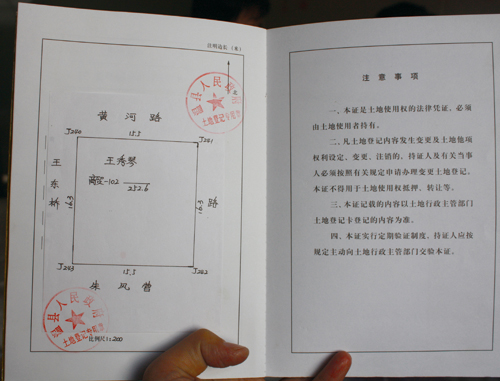 注明边长（米）
黄河路
J240 15.5 J241
王秀琴
-102
252.6
王东桥
16.3
16.3
路
J243 15.5 J242
朱凤曾
县人民政府
土地登记专用章
县人民政府
土地登记专用章
比例尺1:200
注意事项
一、本证是土地使用权的法律凭证，必须
由土地使用者持有。
二、凡土地登记内容发生变更及土地他项
权利设定、变更、注销的，持证人及有关当事
人必须按照有关规定申请办理变更土地登记。
本证不得用于土地使用权抵押、转让等。
三、本证记载的内容以土地行政主管部门
土地登记卡登记的内容为准。
四、本证实行定期验证制度，持证人应按
规定主动向土地行政主管部门交验本证。